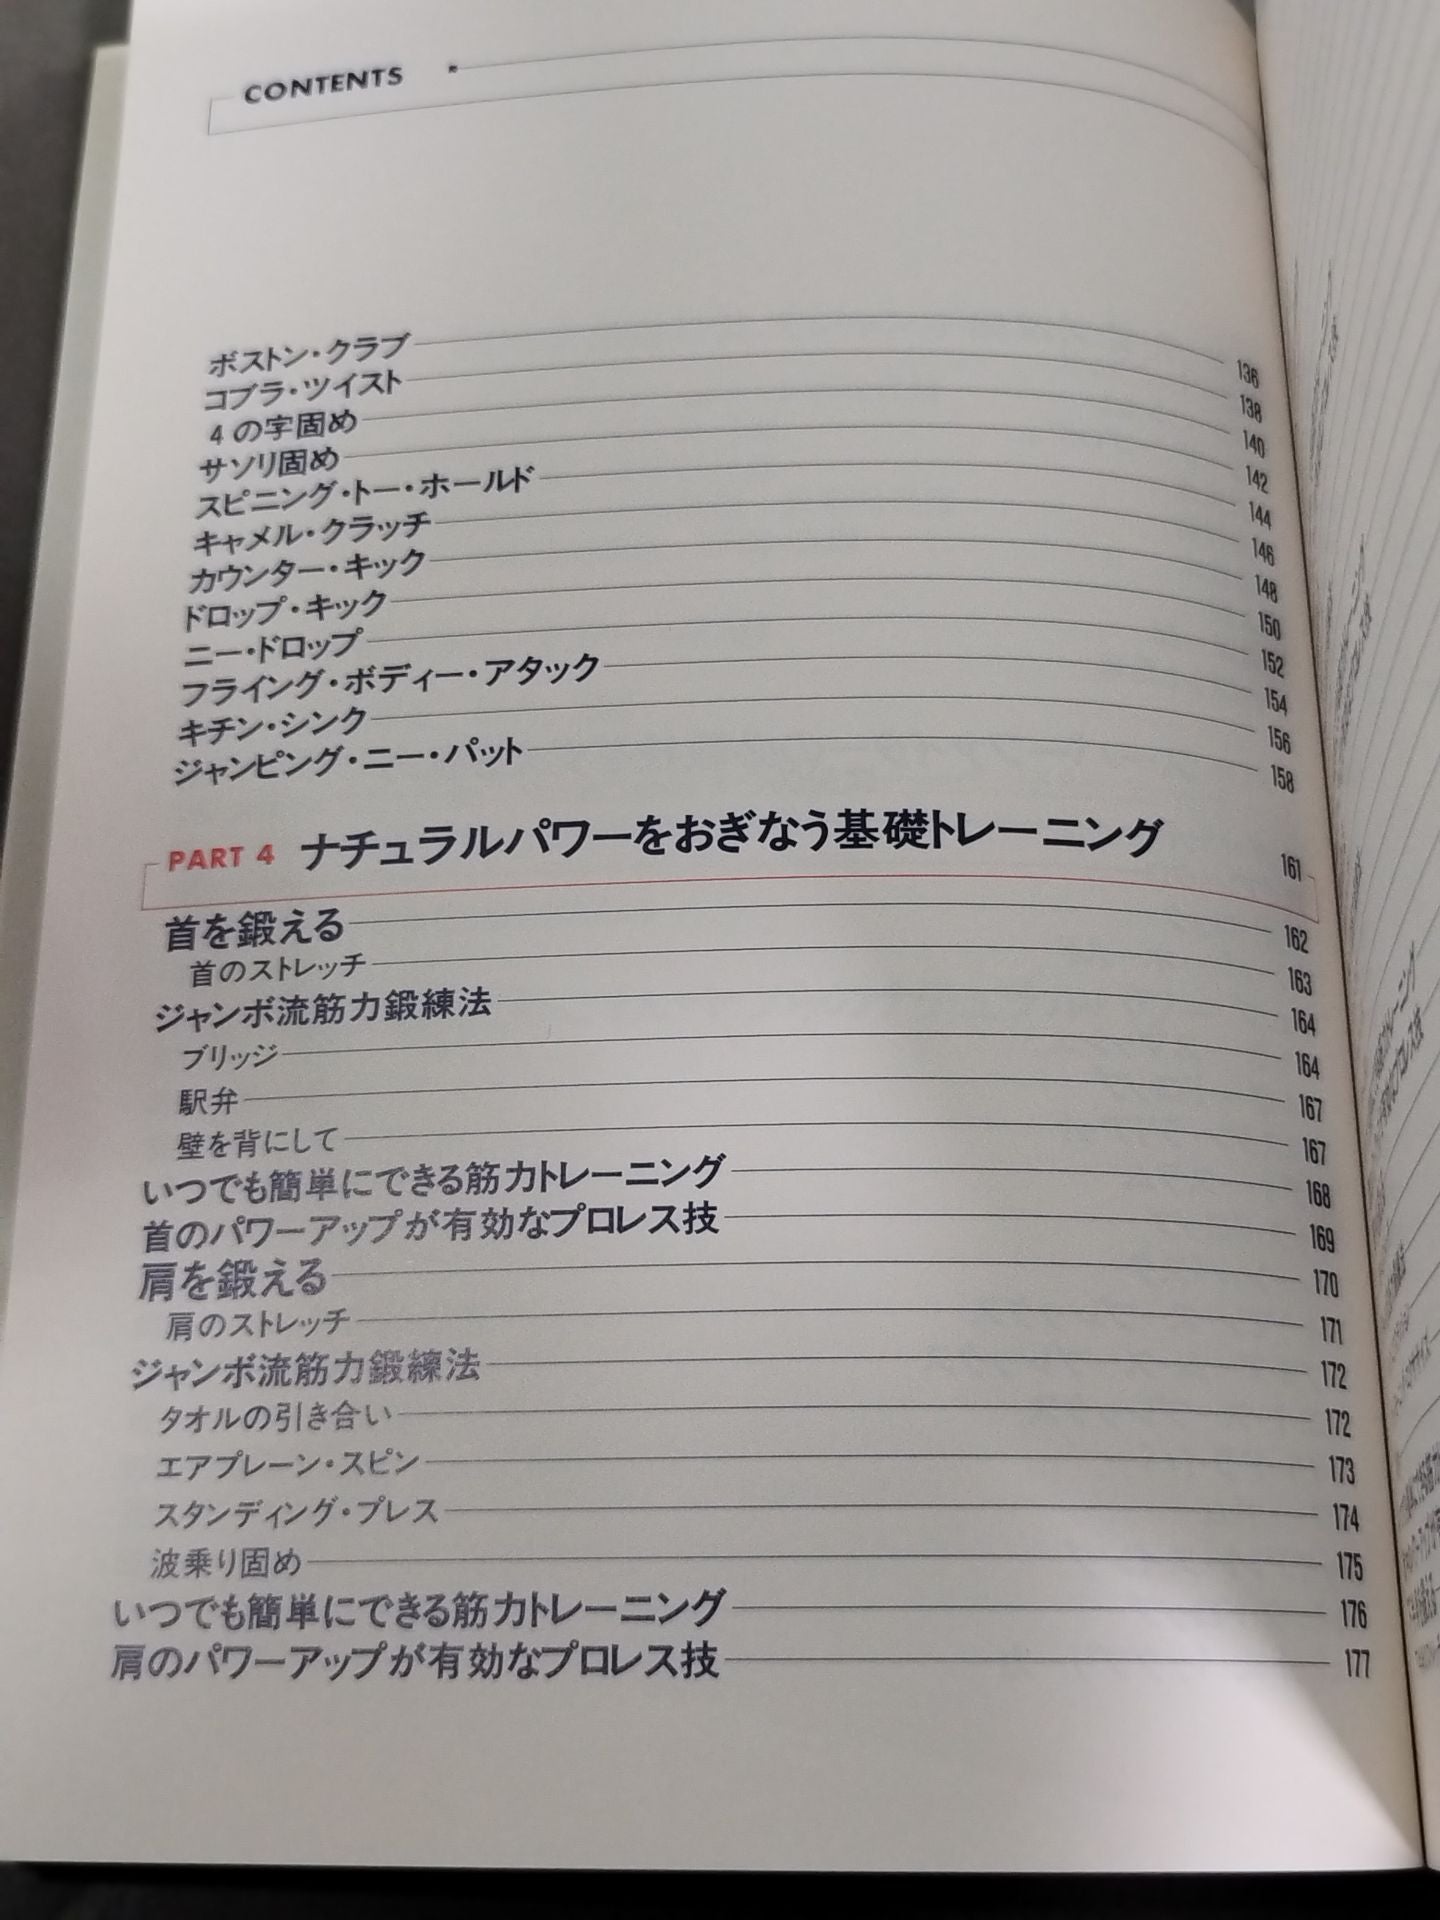 CONTENTS
ボストン・クラブ 136
コブラ・ツイスト 138
4の字固め 140
サソリ固め 142
スピニング・トー・ホールド 144
キャメル・クラッチ 146
カウンター・キック 148
ドロップ・キック 150
ニー・ドロップ 152
フライング・ボディー・アタック 154
キチン・シンク 156
ジャンピング・ニー・パット 158
PART 4 ナチュラルパワーをおぎなう基礎トレーニング 161
首を鍛える 162
首のストレッチ 163
ジャンボ流筋力鍛練法 164
ブリッジ 164
駅弁 167
壁を背にして 167
いつでも簡単にできる筋力トレーニング 168
首のパワーアップが有効なプロレス技 169
肩を鍛える 170
肩のストレッチ 171
ジャンボ流筋力鍛練法 172
タオルの引き合い 172
エアプレーン・スピン 173
スタンディング・プレス 174
波乗り固め 175
いつでも簡単にできる筋力トレーニング 176
肩のパワーアップが有効なプロレス技 177